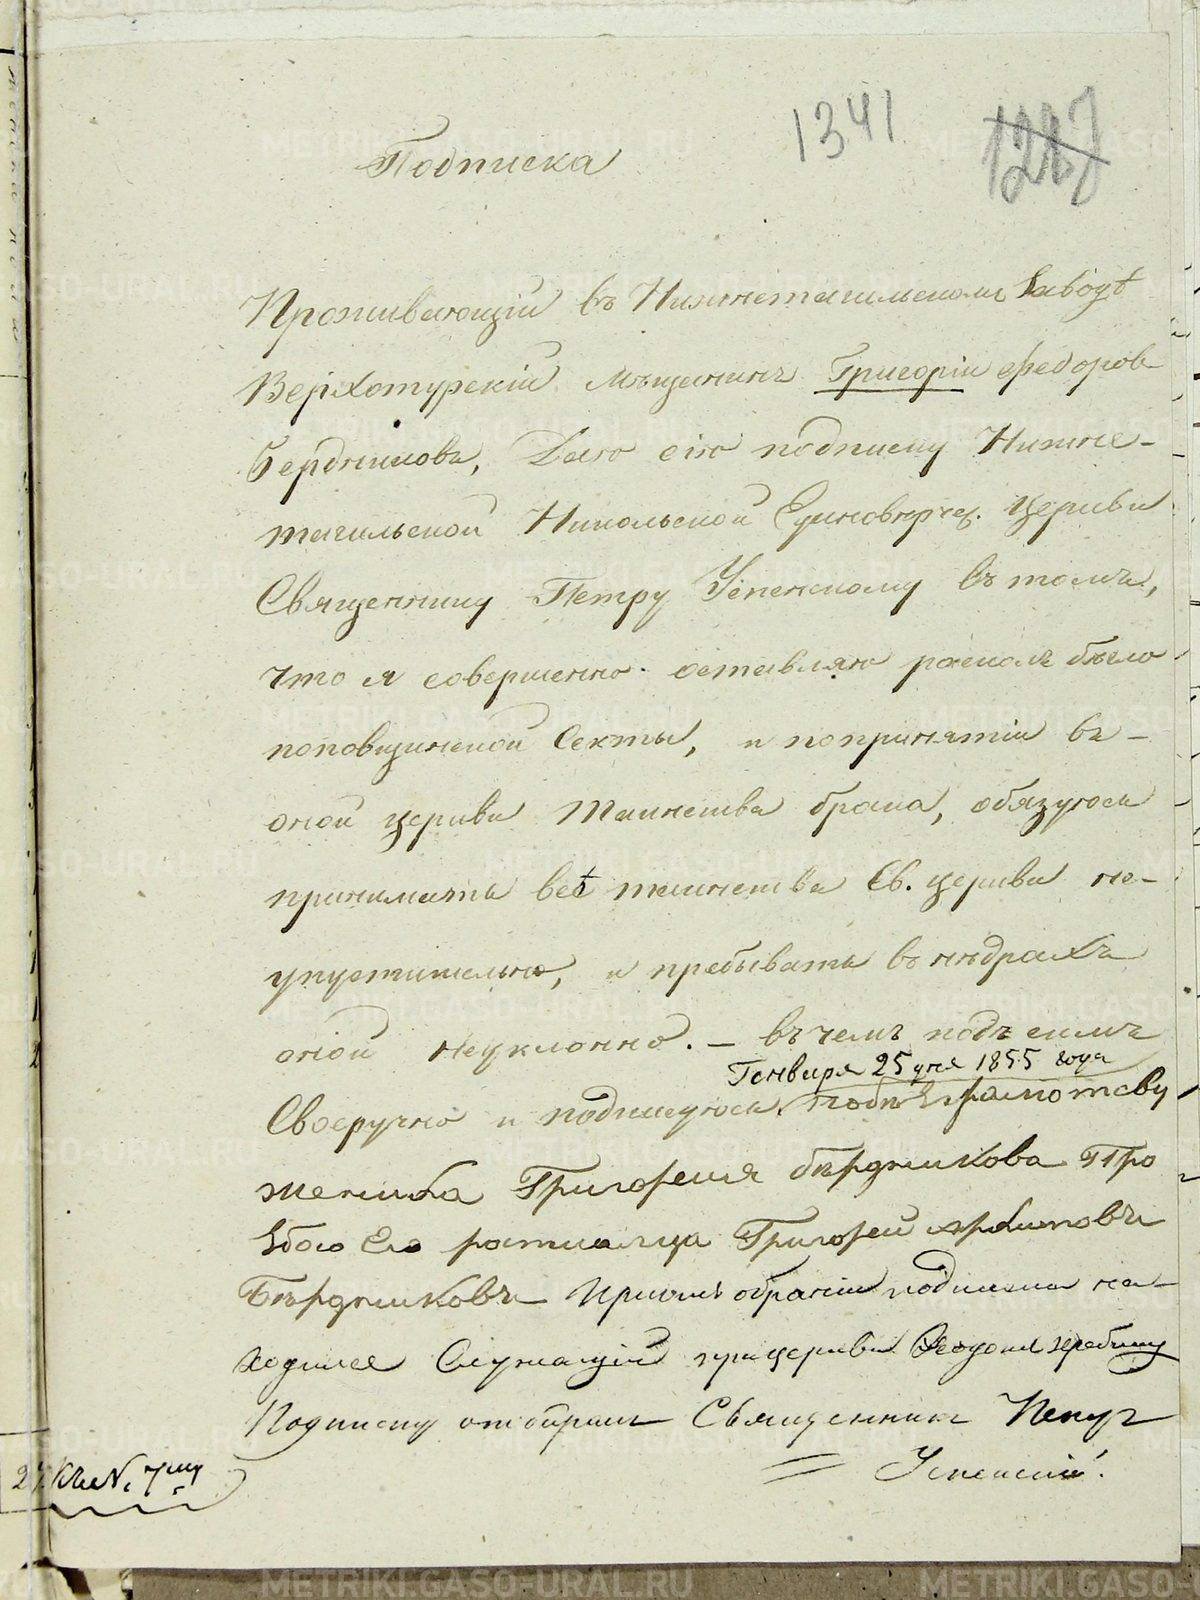 1341 1287
Подписка
Проживающій въ Нижнетагильскомъ Заводѣ
Верхотурскій Мѣщанинъ Григорій Федоров
Бердниковъ, Даю сію подписку Нижне-
тагильской Никольской Единовѣрчес. Церкви
Священнику Петру Успенскому въ томъ,
что я совершенно оставляю расколъ бѣгло
поповщинской Секты, и попринятіи въ-
оной церкви Таинства брака, обязуюсь
принимать всѣ таинства Св. церкви не-
упустительно, и пребывать въ нѣдрахъ
оной неуклонно. – въ чемъ подъ симъ
Генваря 25 дня 1855 года
Своеручно и подписуюсь.
жениха Григорья бѣрдникова Про
збою Его Григорей
Бѣрдниковъ При отобраніи подписки на-
ходился Служащій прицеркви
Подписку отбиралъ Священникъ Петръ
Успенскій.
къ N. 7му
METRIKI.GASO-URAL.RU